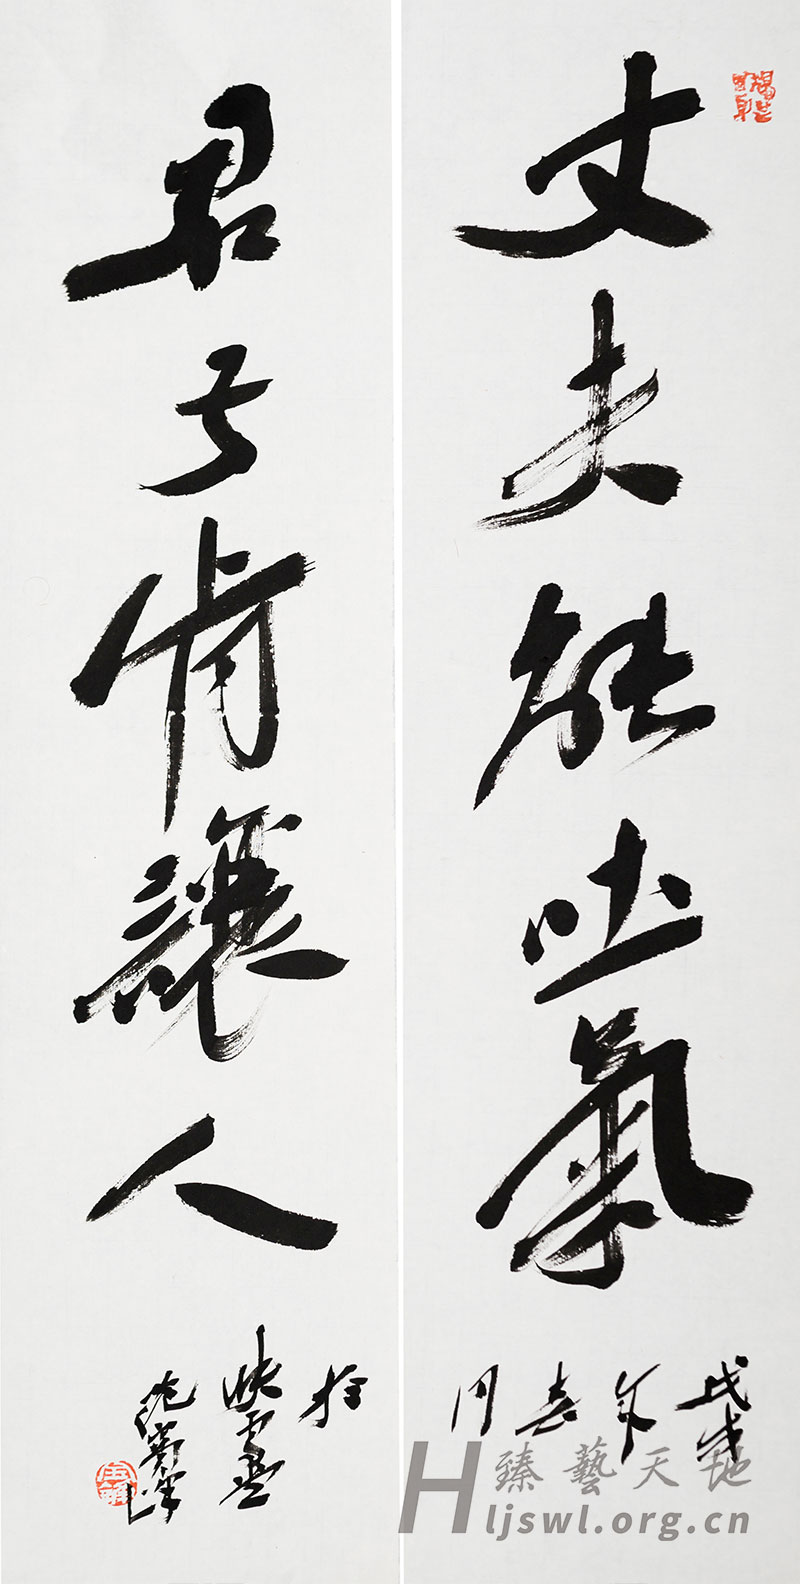 丈夫能吐氣
君子肯讓人
戊戌
年
春
月
臻藝天地
Hljswl.org.cn